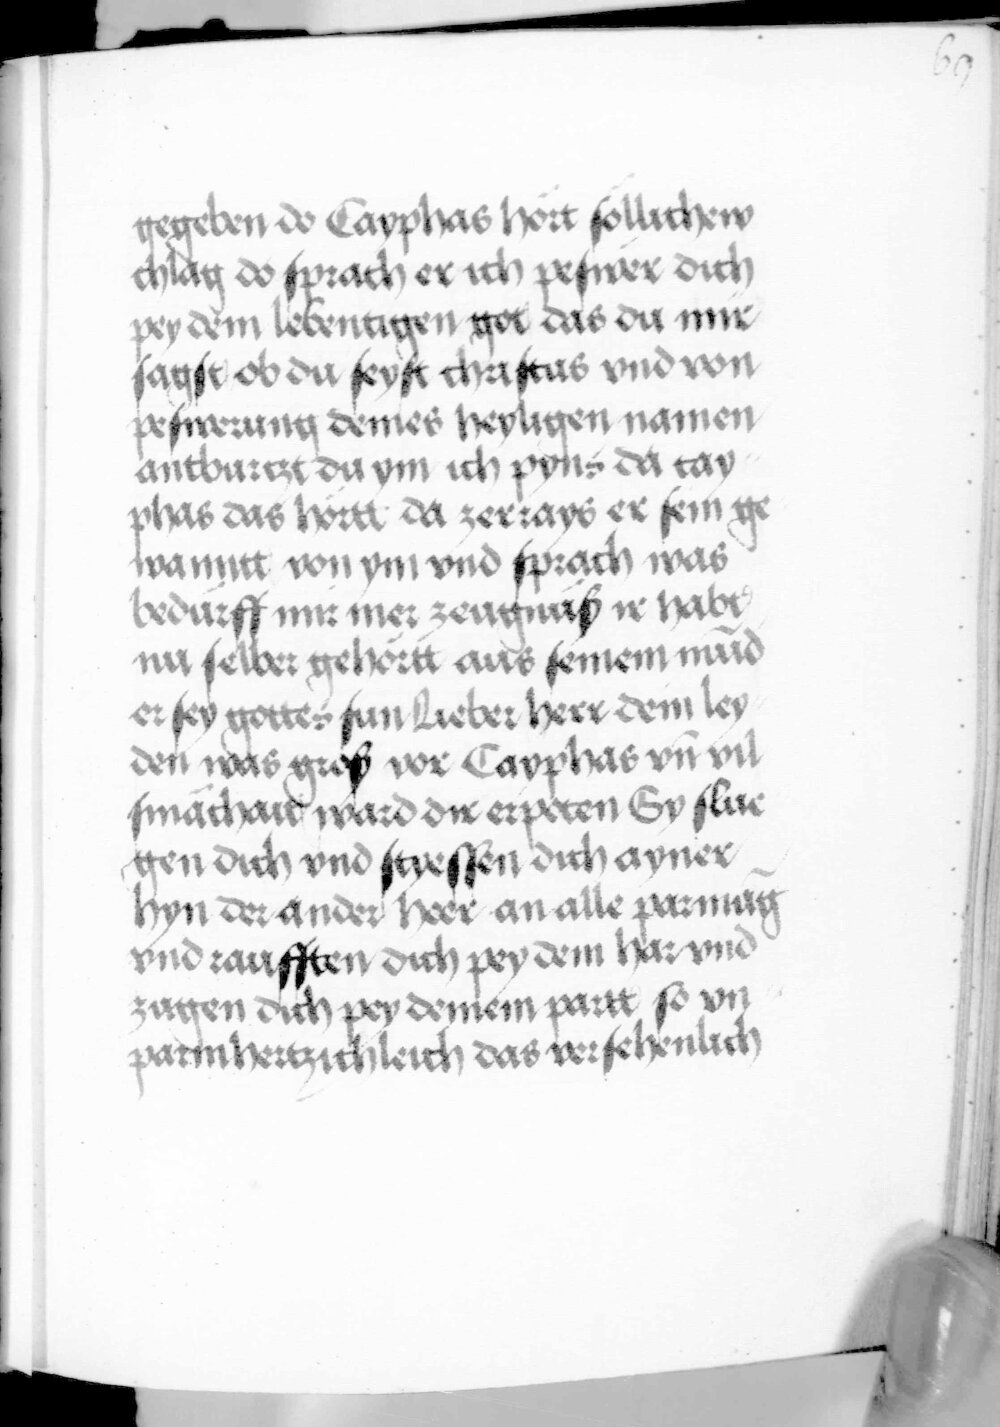 69
gegeben do Cayphas hört söllichew
chlag do sprach er ich peswer dich
pey dem lebentigen got das du mir
sagst ob du seyst christus vnd von
peswerung deines heyligen namen
antburtzt du ym ich pyns da cay
phas das hörtt da zerrays er sein ge
wanntt von ym vnd sprach was
bedürff mir mer zeugnüß ir habt
nu selber gehörtt aus seinem mūd
er sey gottes sun Lieber herr dein ley
den was groß vor Cayphas vn̄ vil
smächait ward dir erpeten Sy slue
gen dich vnd styessen dich ayner
hyn der ander heer an alle parmūg
vnd raufften dich pey dem har vnd
zugen dich pey deinem partt so vn
parmhertzichleich das versehenlich